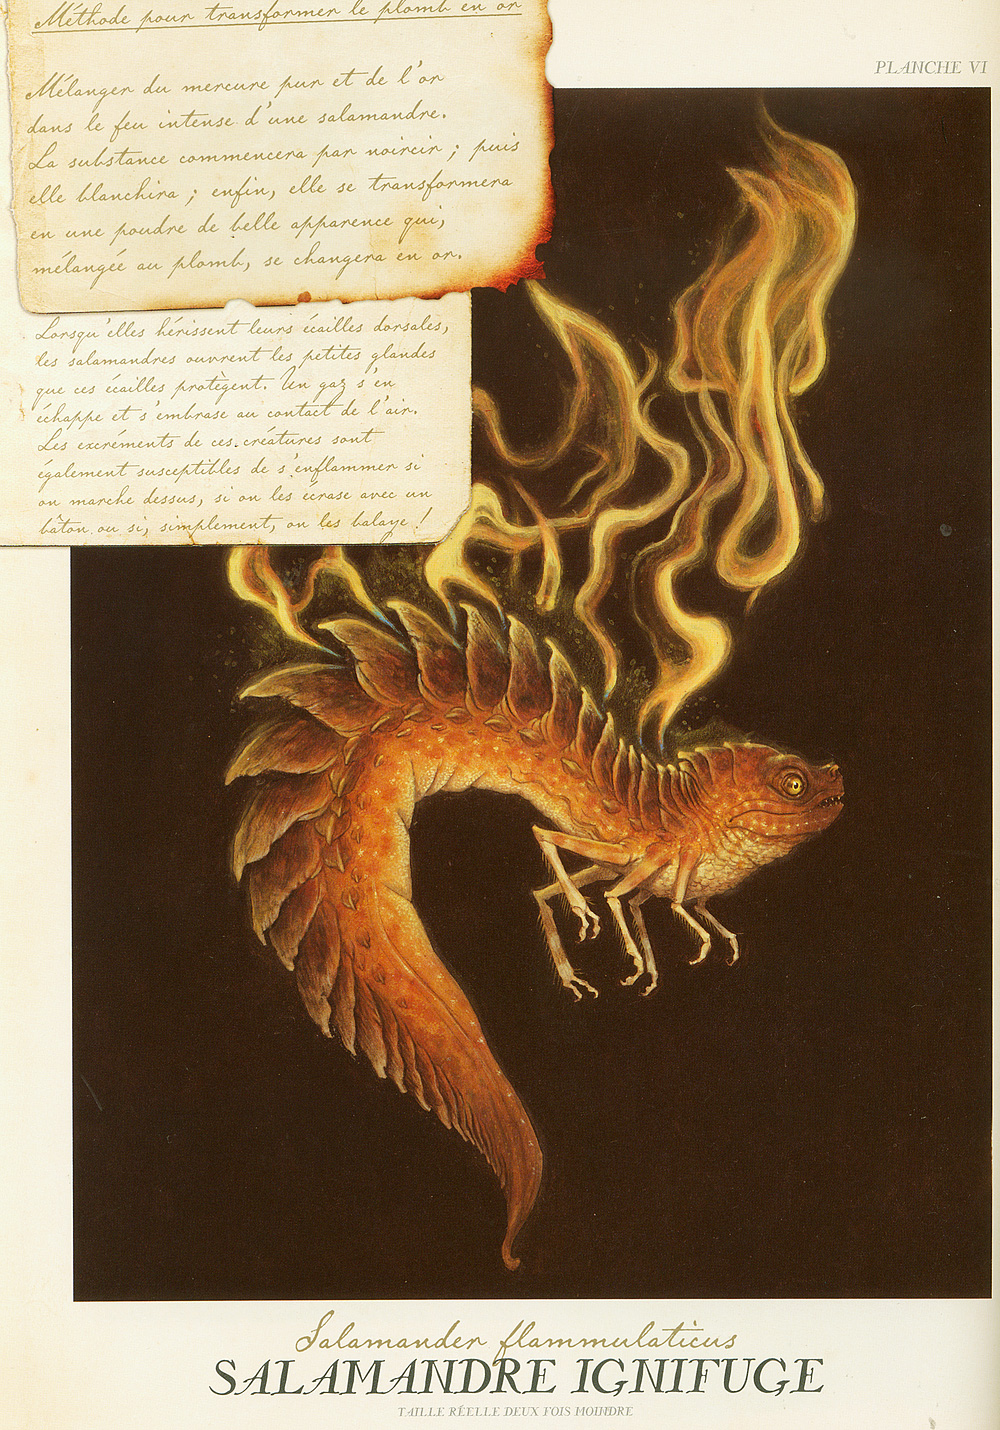 Méthode pour transformer le plomb en or
PLANCHE VI
Mélanger du mercure pur et de l'or
dans le feu intense d'une salamandre.
La substance commencera par noircir ; puis
elle blanchira ; enfin, elle se transformera
en une poudre de belle apparence qui,
mélangée au plomb, se changera en or.
Lorsqu'elles hérissent leurs écailles dorsales,
les salamandres ouvrent les petites glandes
que ces écailles protègent. Un gaz s'en
échappe et s'embrase au contact de l'air.
Les excréments de ces créatures sont
également susceptibles de s'enflammer si
on marche dessus, si on les écrase avec un
bâton ou si, simplement, on les balaye !
Salamander flammulaticus
SALAMANDRE IGNIFUGE
TAILLE RÉELLE DEUX FOIS MOINDRE